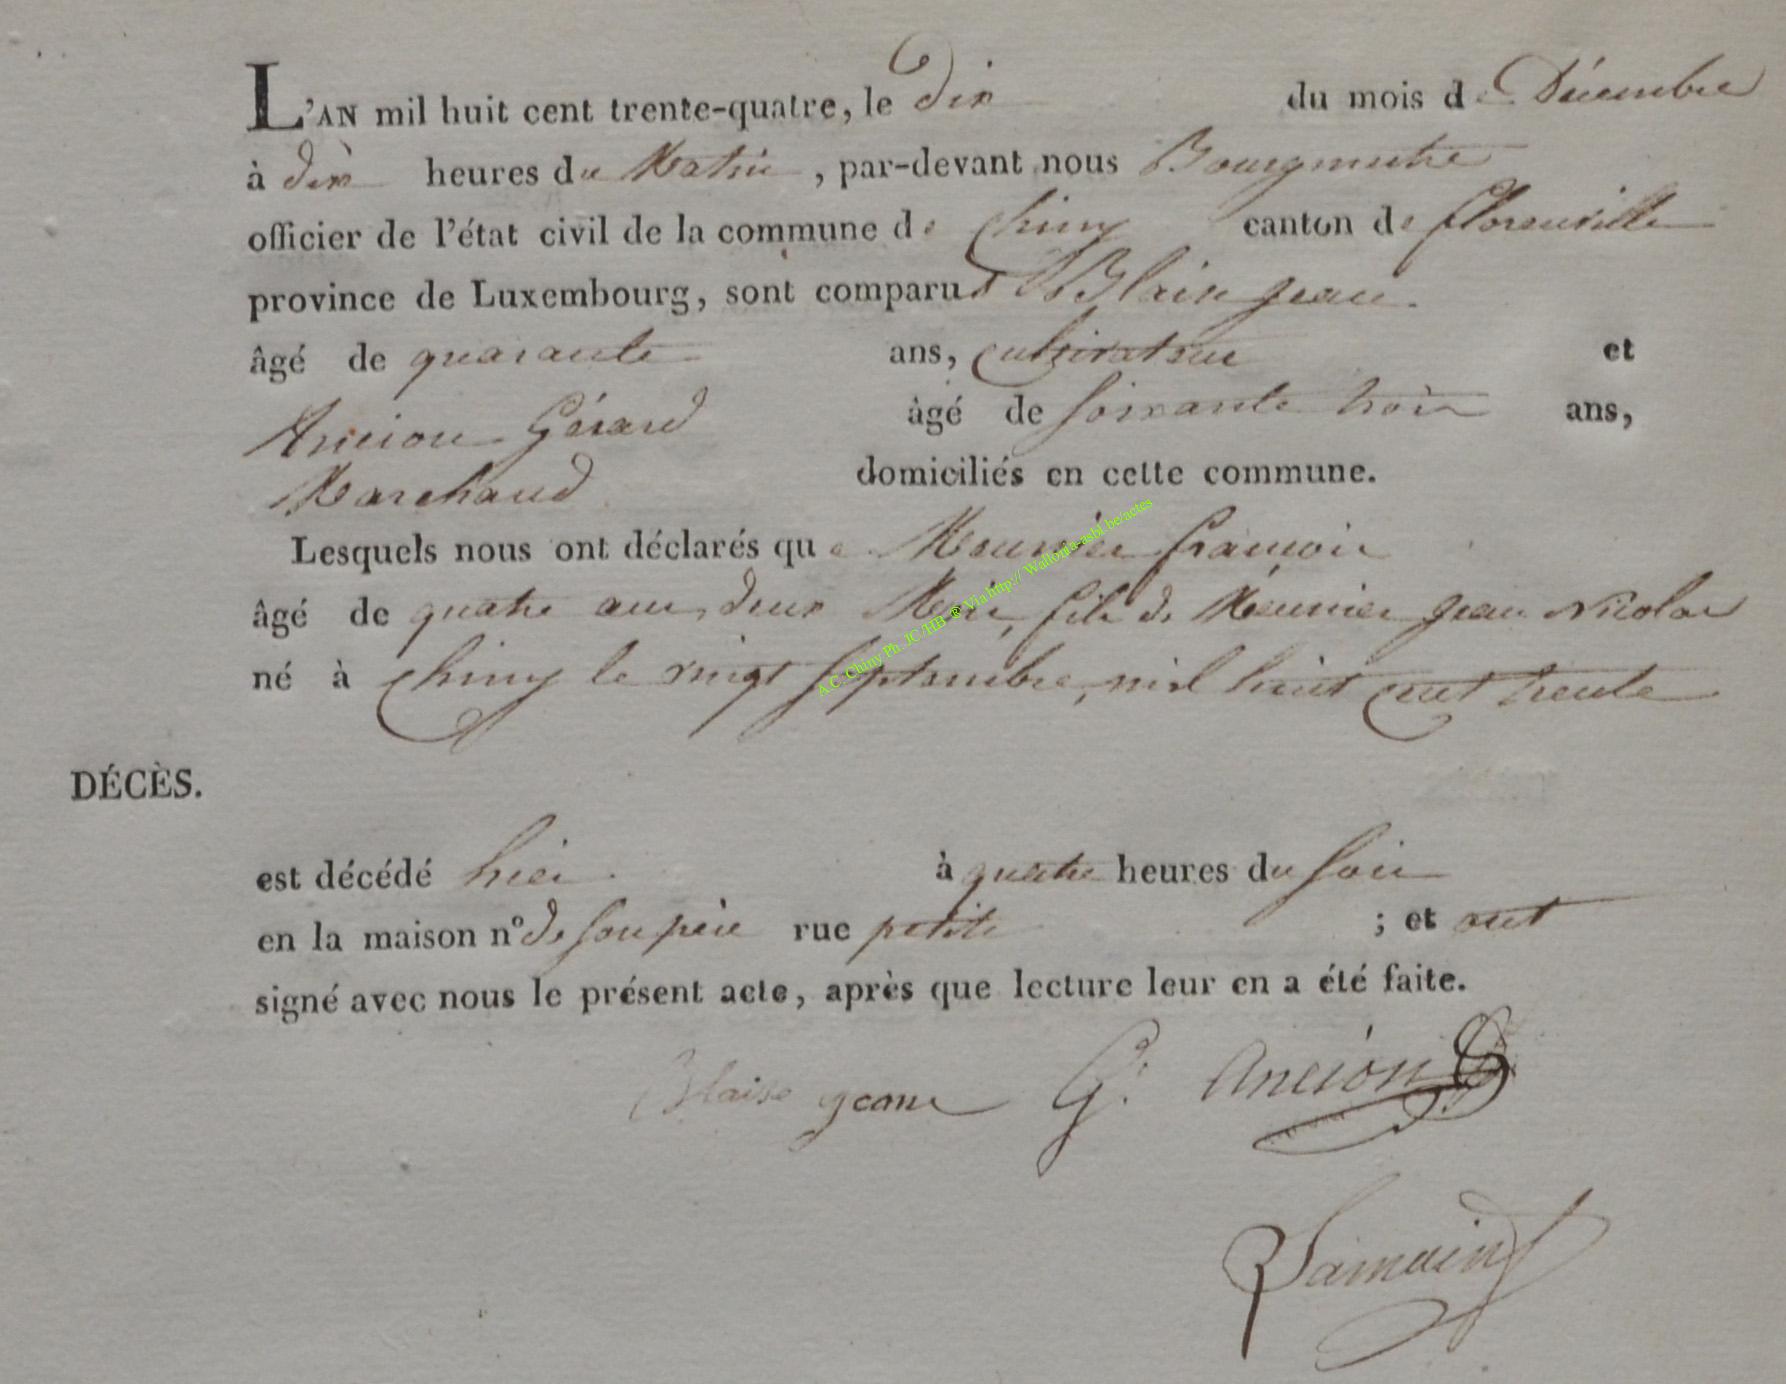 L'AN mil huit cent trente-quatre, le dix du mois de Décembre
à dix heures du Matin, par-devant nous Bourgmestre
officier de l'état civil de la commune de Chiny canton de florenville
province de Luxembourg, sont comparus Blaise jean
âgé de quarante ans, cultivateur et
Ancion Gérard âgé de soixante trois ans,
Marchand domiciliés en cette commune.
Lesquels nous ont déclarés que Meunier françois
âgé de quatre ans, deux Mois, fils de Meunier jean Nicolas
né à Chiny le vingt septembre, mil huit cent trente
DÉCÈS.
est décédé hier à quatre heures du soir
en la maison n° de son père rue petite ; et ont
signé avec nous le présent acte, après que lecture leur en a été faite.
Blaise jean G. Ancion
A.C. Chiny Ph. JC/HB ® Via http:// Wallonia-asbl.be/actes